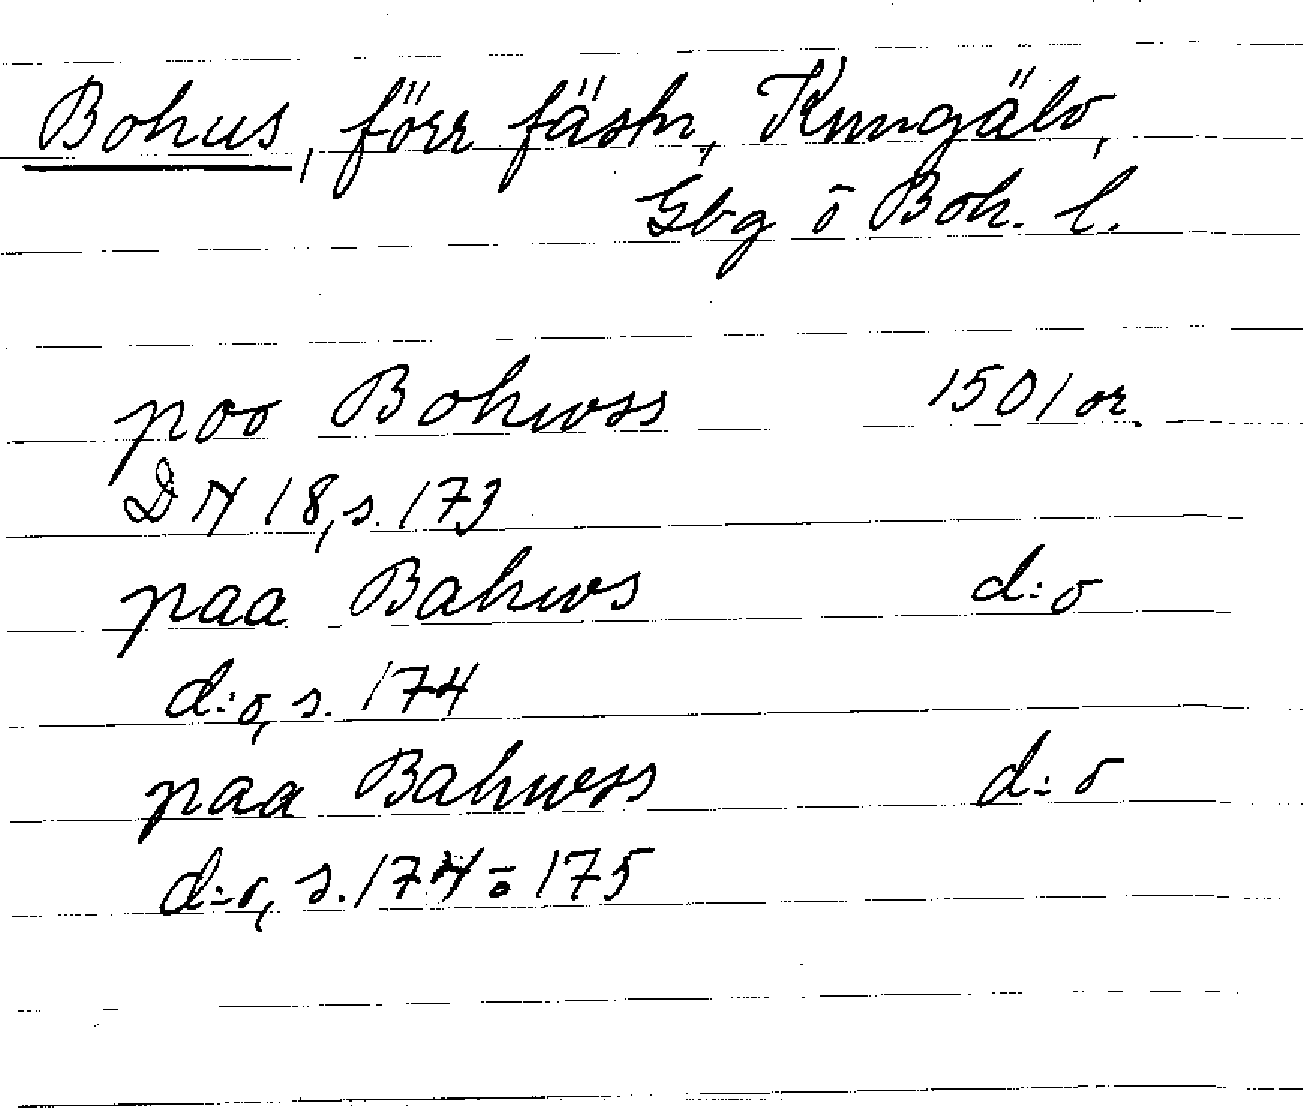 Bohus, förr fästn, Kungälv,
Gbg o Boh. l.
poo Bohwss 1501 or.
DN 18, s. 173
paa Bahws d:o
d:o, s. 174
paa Bahwss d:o
d:o, s. 174 o 175